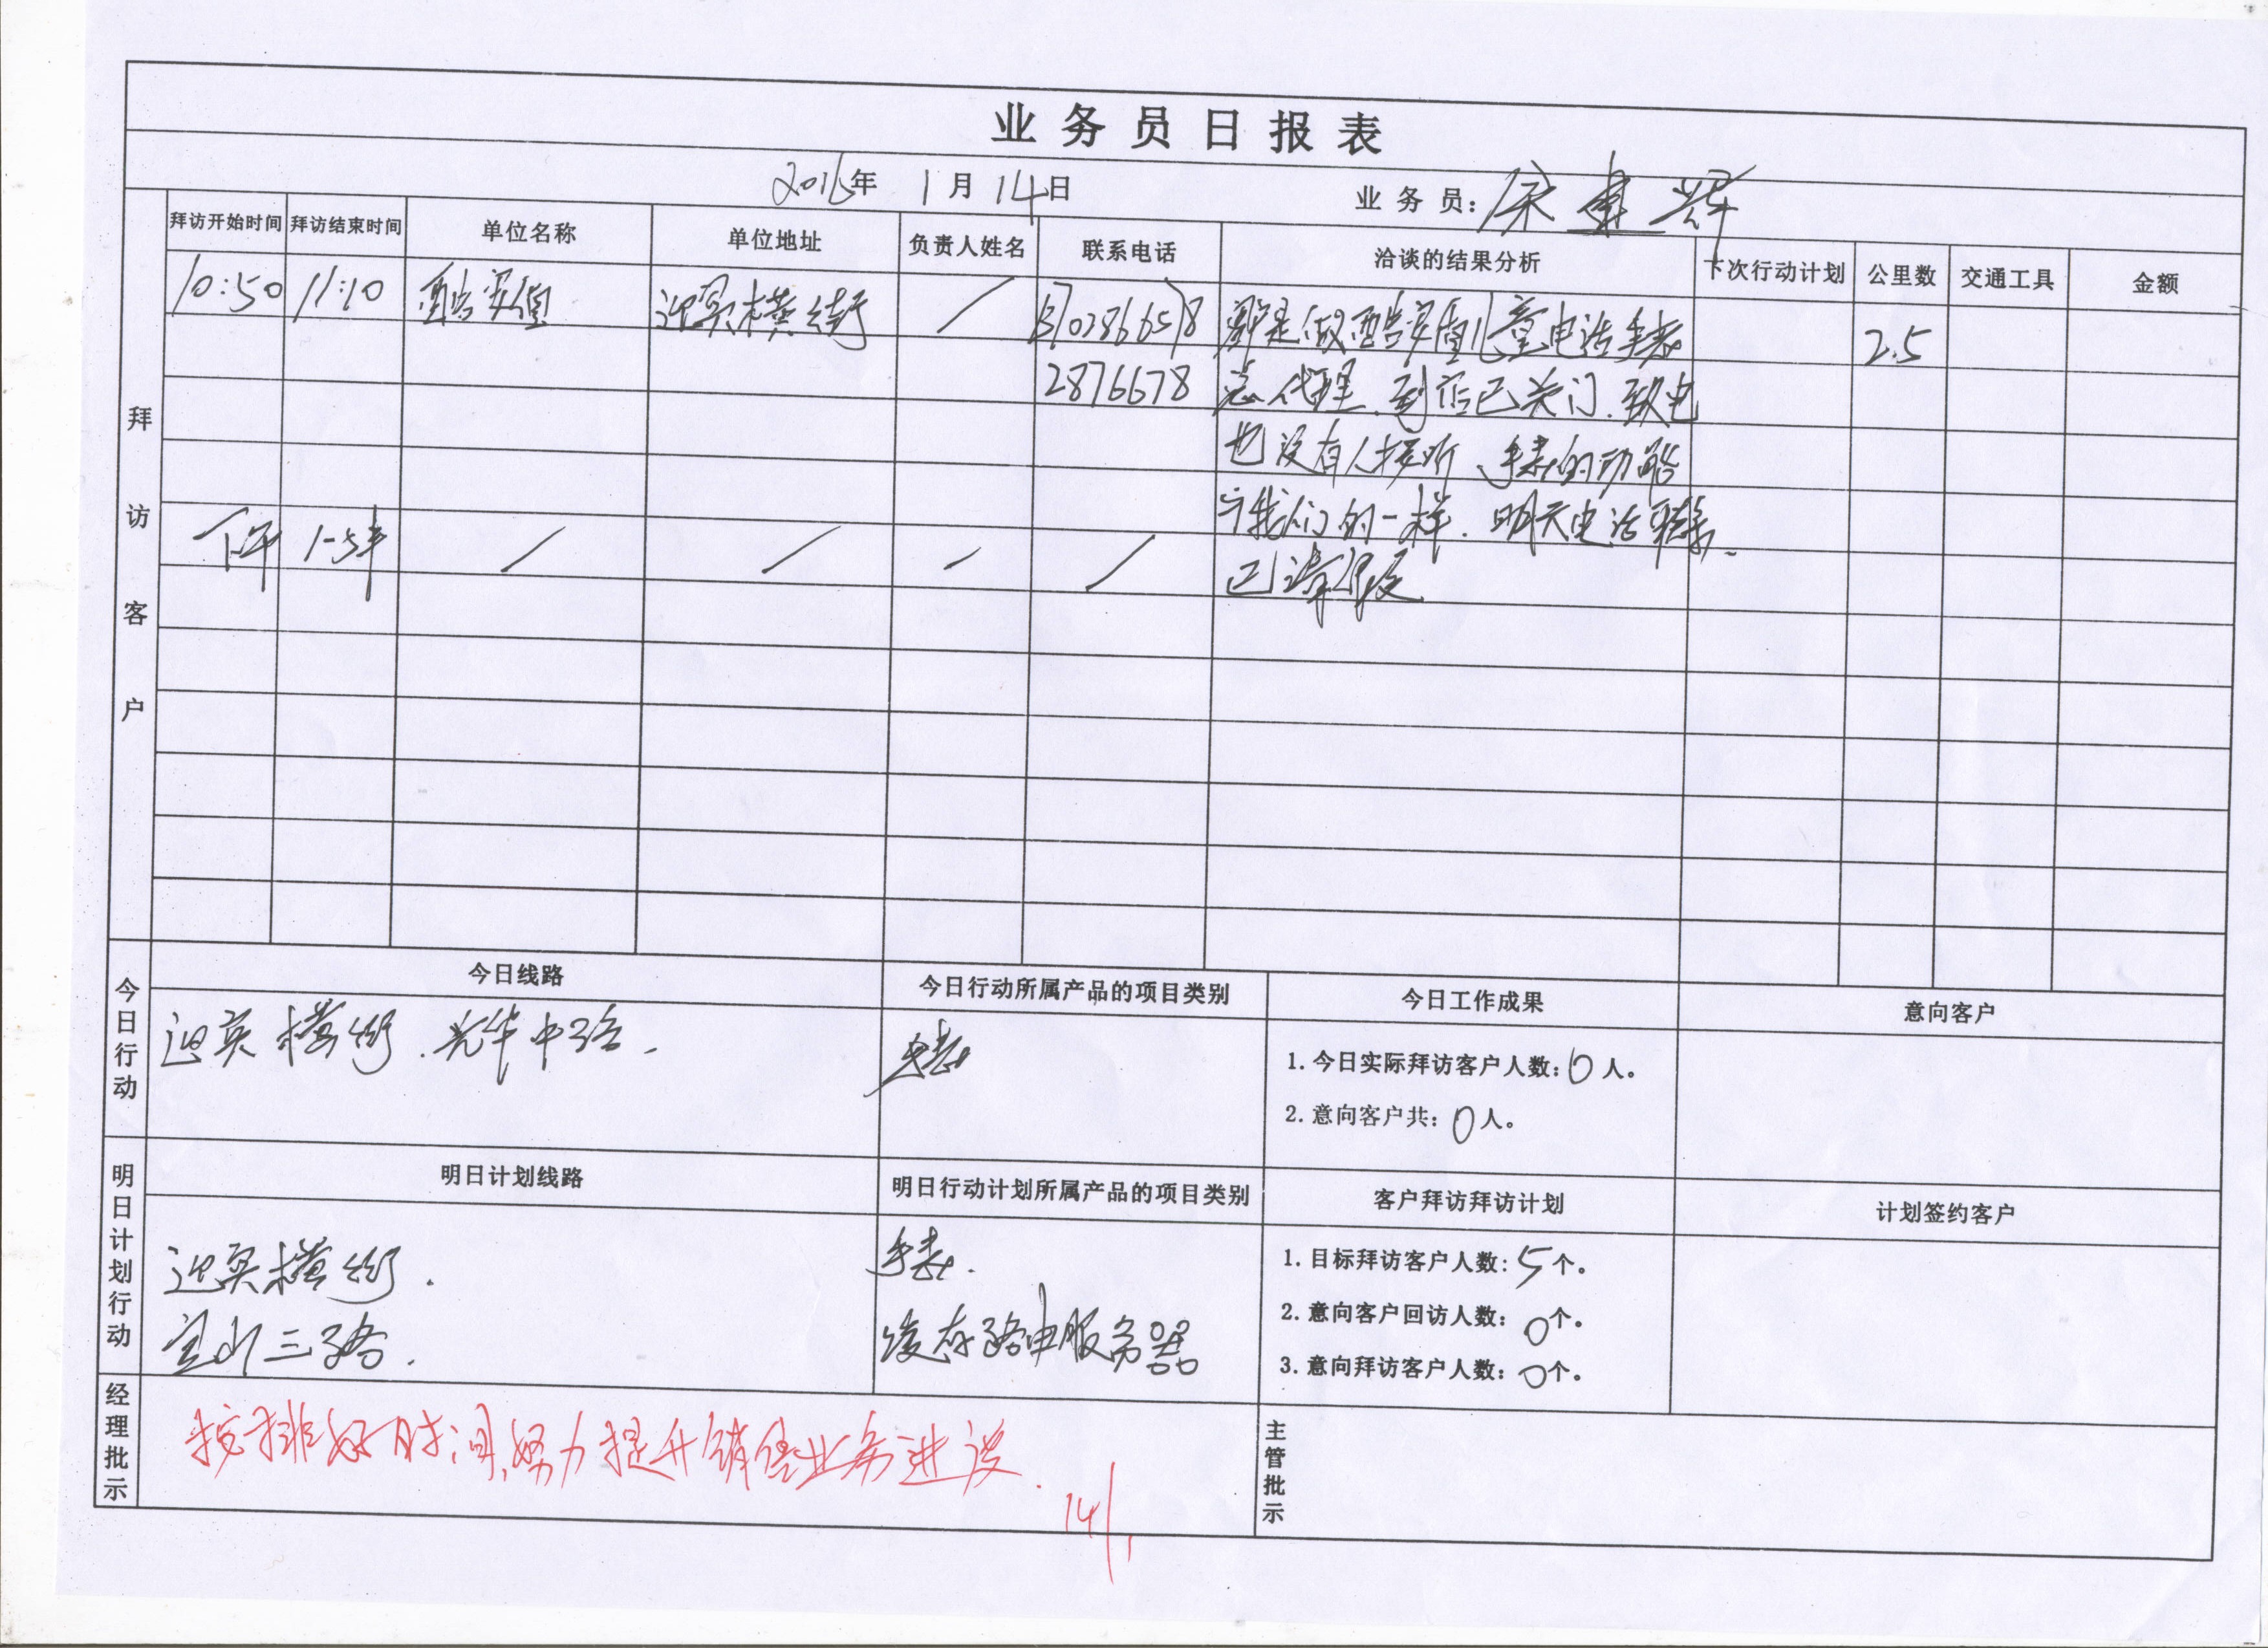 业务员日报表
2016年 1月14日 业务员: 建辉
拜访客户
拜访开始时间 拜访结束时间 单位名称 单位地址 负责人姓名 联系电话 洽谈的结果分析 下次行动计划 公里数 交通工具 金额
10:50 11:10 酷安值 迎宾横街 / 13702866518 都是做酷安值儿童电话手表 2.5
2876678 总代理.到后已关门.致电
也没有人接听 手表的功能
与我们的一样.明天电话联系.
下午 1-5半 / / / / 已请假
今日行动
今日线路 今日行动所属产品的项目类别 今日工作成果 意向客户
迎宾横街.光华中路. 手表 1.今日实际拜访客户人数:0人。
2.意向客户共:0人。
明日计划行动
明日计划线路 明日行动计划所属产品的项目类别 客户拜访拜访计划 计划签约客户
迎宾横街. 手表. 1.目标拜访客户人数:5个。
三路. 缓存路由服务器 2.意向客户回访人数:0个。
3.意向拜访客户人数:0个。
经理批示
按排好时间,努力提升销售业务进度.
14/1
主管批示